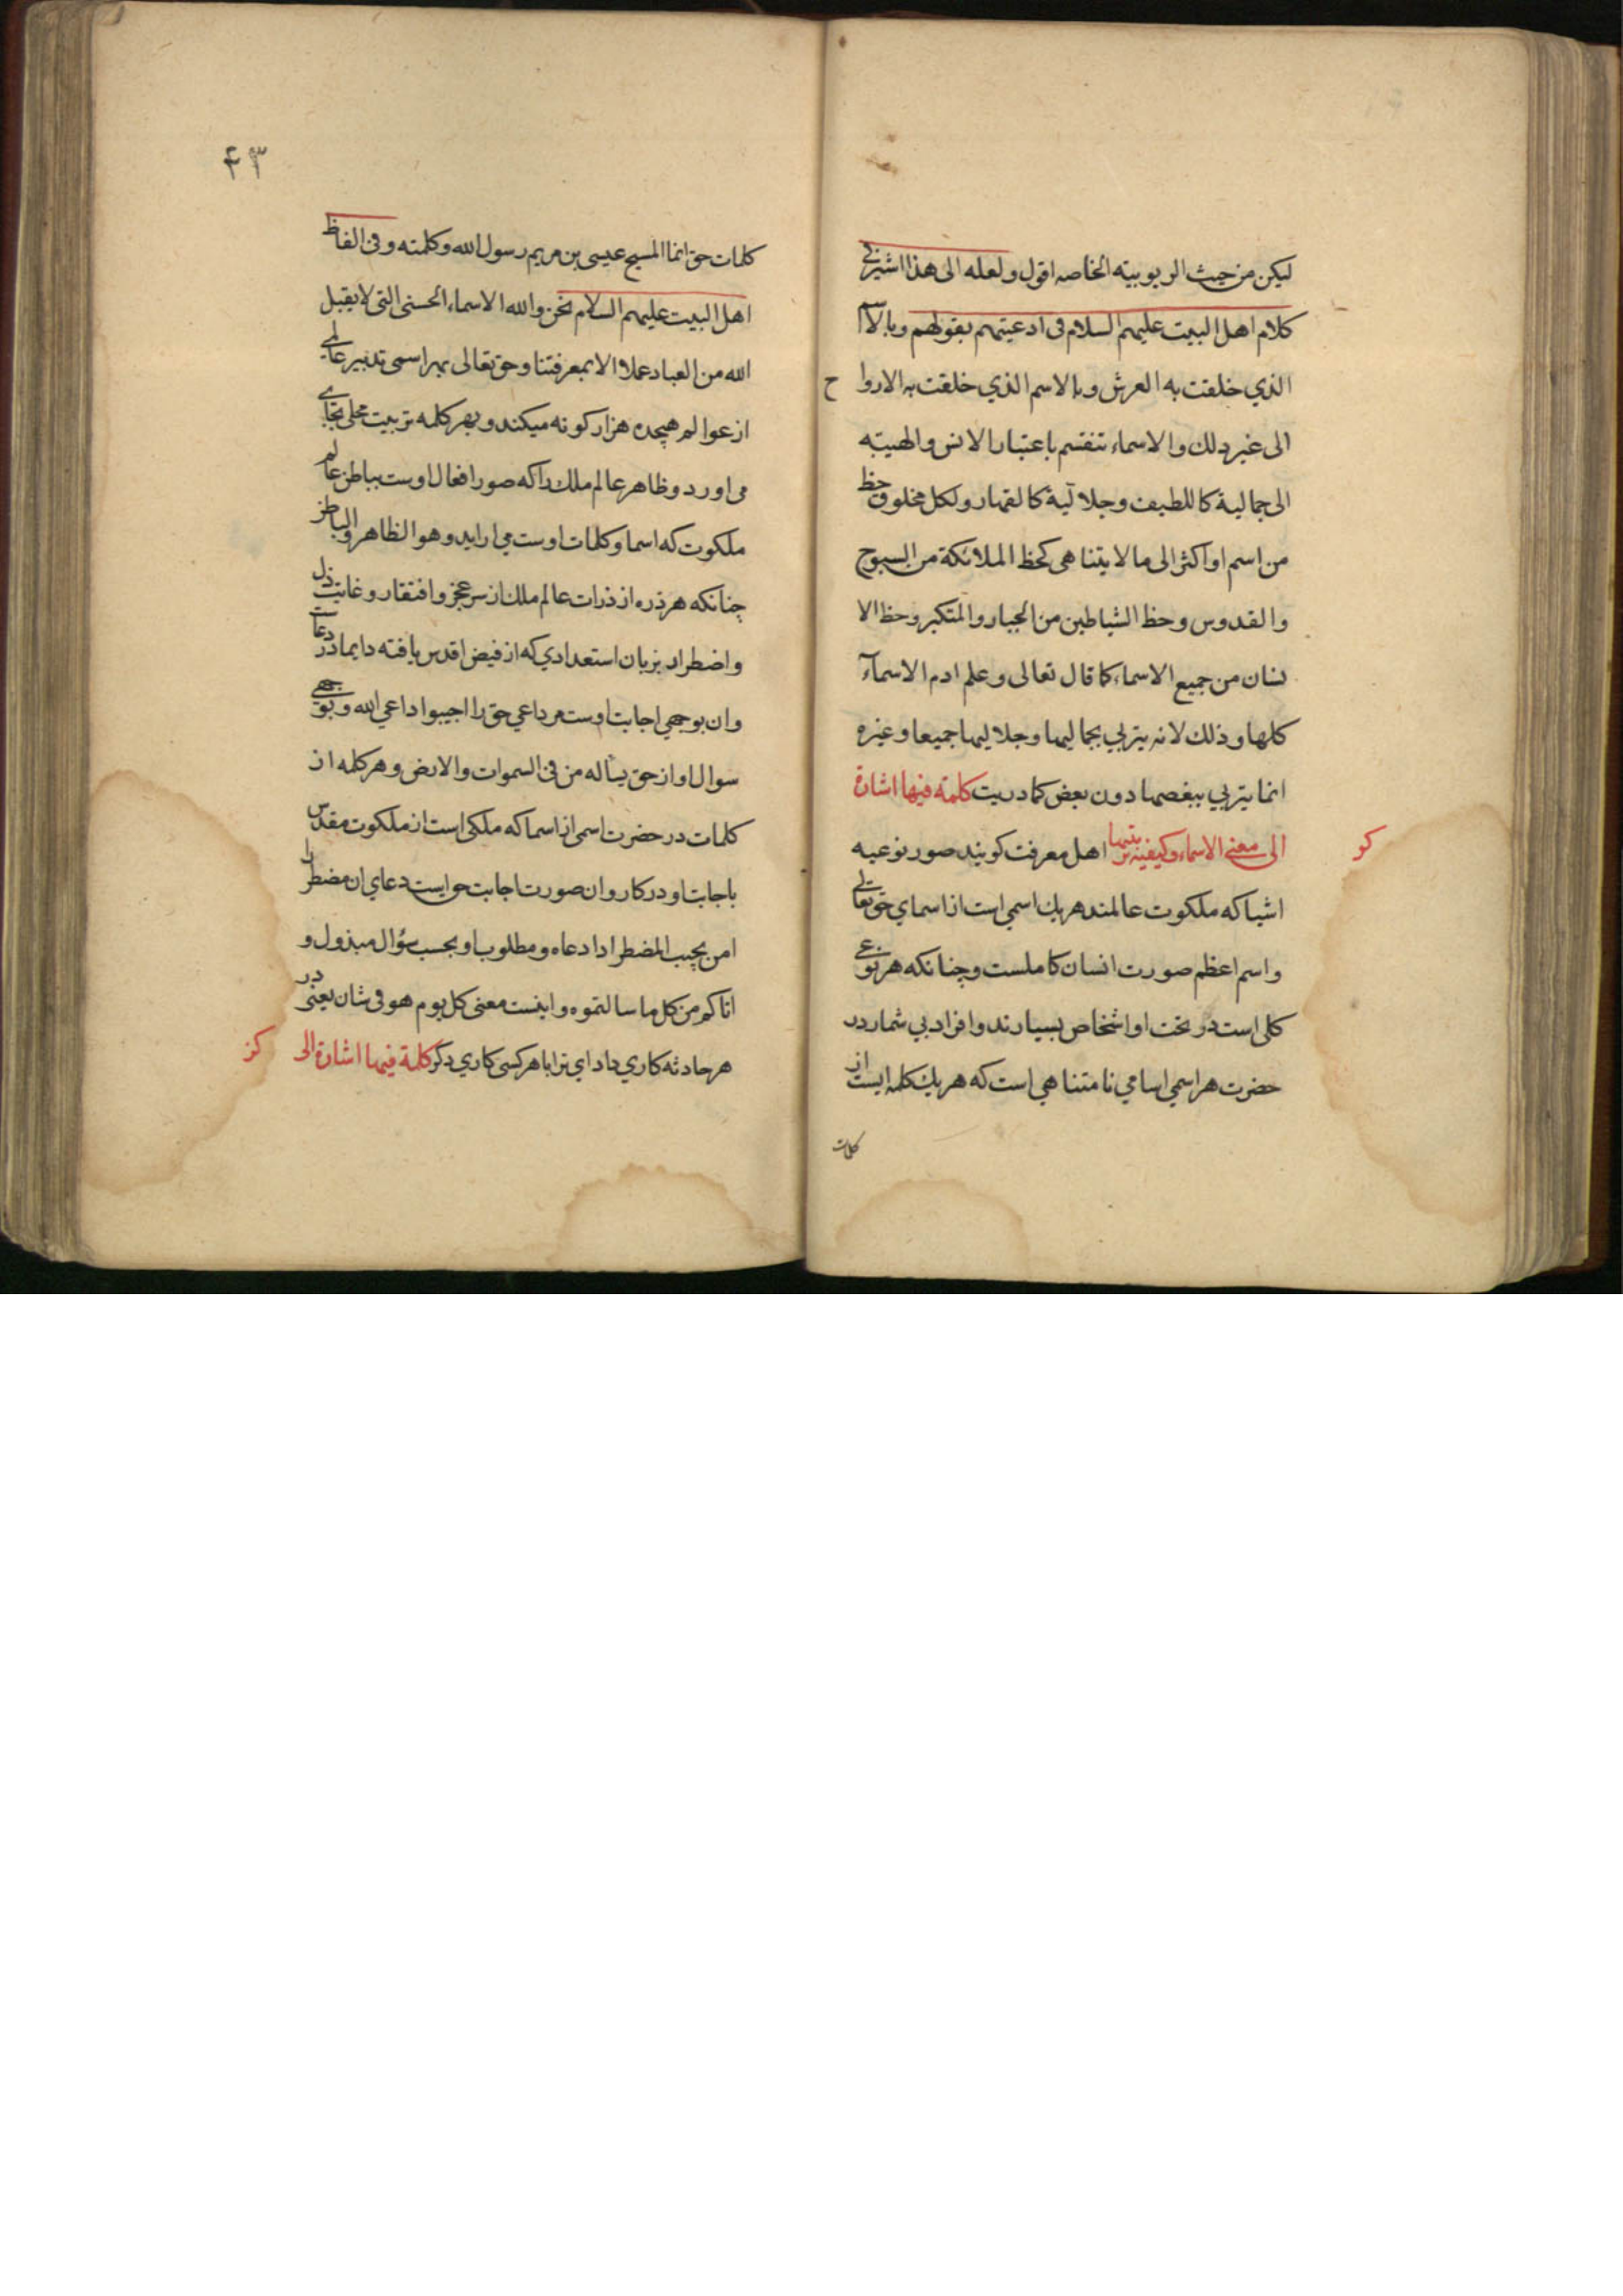 ليكن من حيث الربوبيته الخاصه اقول ولعله الى هذا اشير في
كلام اهل البيت عليهم السلام فى ادعيتهم بقولهم وبالاسم
الذي خلقت به العرش وبالاسم الذي خلقت به الاروا ح
الى غير ذلك والاسماء تنقسم باعتبار الانس والهيبته
الى جمالية كاللطيف وجلالية كالقهار ولكل مخلوق حظ
من اسم او اكثر الى ما لا يتناهى كحظ الملائكة من السبوح
والقدوس وحظ الشياطين من الجبار والمتكبر وحظ الا
نسان من جميع الاسماء كما قال تعالى وعلم ادم الاسمآء
كلها وذلك لانه يتربي بجماليها وجلاليها جميعا وغيره
انما يتربي ببعضها دون بعض كما دريت كلمة فيها اشارة
كو
الى معنى الاسماء وكيفية تربيتها اهل معرفت كويند صور نوعيه
اشيا كه ملكوت عالمند هر يك اسمي است از اسماي حق تعالى
واسم اعظم صورت انسان كاملست وچنانكه هر نوعي
كلى است در تحت او اشخاص بسيارند وافراد بي شمار در
حضرت هر اسمي اسامي نامتناهي است كه هر يك كلمه ايست از
كلمات
۴۳
كلمات حق انما المسيح عيسى بن مريم رسول الله وكلمته وفى الفاظ
اهل البيت عليهم السلام نحن والله الاسماء الحسنى التى لا يقبل
الله من العباد عملا الا بمعرفتنا وحق تعالى بهر اسمى تدبير عالمي
از عوالم هيجده هزار كونه ميكند وبهر كلمه تربيت محلى بجاي
مى اورد وظاهر عالم ملك را كه صور افعال اوست بباطن عالم
ملكوت كه اسما وكلمات اوست مي ارايد وهو الظاهر والباطن
چنانكه هر ذره از ذرات عالم ملك از سر عجز وافتقار وغايت ذل
واضطرار بزبان استعدادي كه از فيض اقدس يافته دايما در دعاست
وان بوجهي اجابت اوست مر داعي حق را اجيبوا داعي الله وبوجهي
سوال او از حق يسأله من فى السموات والارض وهر كلمه از
كلمات در حضرت اسمى از اسما كه ملكى است از ملكوت مقدس
باجابت او در كار وان صورت اجابت حو ايست دعاي ان مضطر را
امن يجيب المضطر اذا دعاه ومطلوب او بحسب سؤال مبذول و
اتاكم من كل ما سالتموه واينست معنى كل يوم هو فى شان يعنى در
هر حادثه كاري دارد اي ترا با هر كسى كاري دكر كلمة فيها اشارة الى
كز